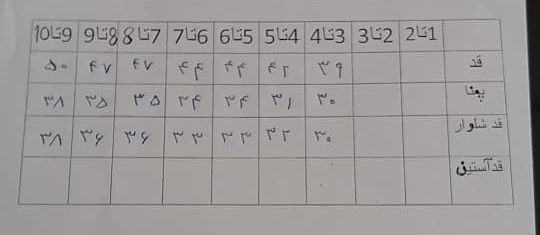 1تا2 2تا3 3تا4 4تا5 5تا6 6تا7 7تا8 8تا9 9تا10
قد ۳۹ ۴۲ ۴۴ ۴۴ ۴۷ ۴۷ ۵۰
پهنا ۳۰ ۳۱ ۳۴ ۳۴ ۳۵ ۳۵ ۳۸
قد شلوار ۳۰ ۳۲ ۳۳ ۳۳ ۳۶ ۳۶ ۳۸
قدآستین